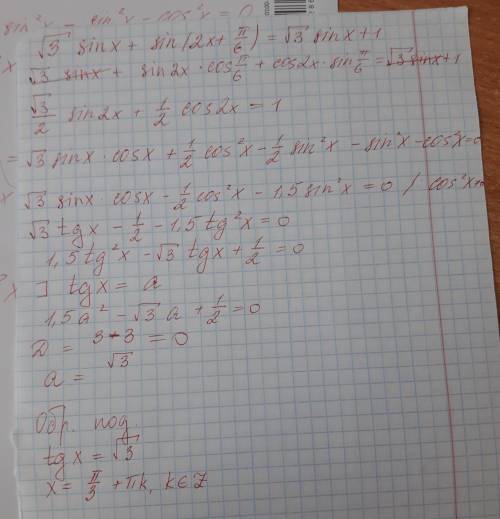 sin²x - sin²x - cos²x = 0
√3 sinx + sin(2x + π/6) = √3 sinx + 1
√3 sinx + sin2x · cos π/6 + cos2x · sin π/6 = √3 sinx + 1
√3/2 sin2x + 1/2 cos2x = 1
= √3 sinx · cosx + 1/2 cos²x - 1/2 sin²x - sin²x - cos²x = 0
√3 sinx · cosx - 1/2 cos²x - 1,5 sin²x = 0 / cos²x ≠ 0
√3 tgx - 1/2 - 1,5 tg²x = 0
1,5 tg²x - √3 tgx + 1/2 = 0
] tgx = a
1,5a² - √3 a + 1/2 = 0
D = 3 - 3 = 0
a = √3
Обр. под.
tgx = √3
x = π/3 + πk, k∈Z